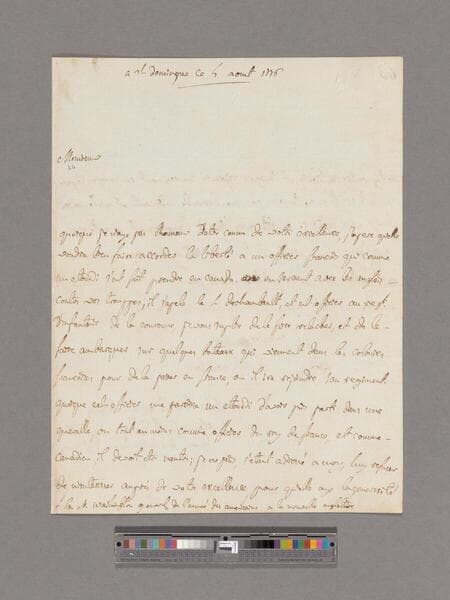 a St Domingue ce 4 aoust 1776
Monsieur
quoique je n'aye pas l'honneur d'etre connu de votre excellence, j'espere quelle
voudra bien faire accorder la liberté a un officier francois qui comme
un etourdi s'est fait prendre en canada en servant avec les anglois
contre vos trouppes, il s'apele le de chambault, il est officier au regt
d'infanterie de la couronne je vous suplie de le faire relacher, et de le
faire embarquer sur quelques bateaux qui viennent dans les colonies
francoises pour de la passer en france, ou il ira rejoindre son regiment
quoique cet officier me paroisse un etourdi d'avoir pris parti dans une
querelle, ou tout au moins comme officier du roy de france et comme
canadien il devoit etre neutre; je ne puis s'etant adressé a moy, luy refuser
de m'interesser aupres de votre excellence pour quelle aye la bonté
M. Washington general de l'armée des americains a la nouvelle angleterre